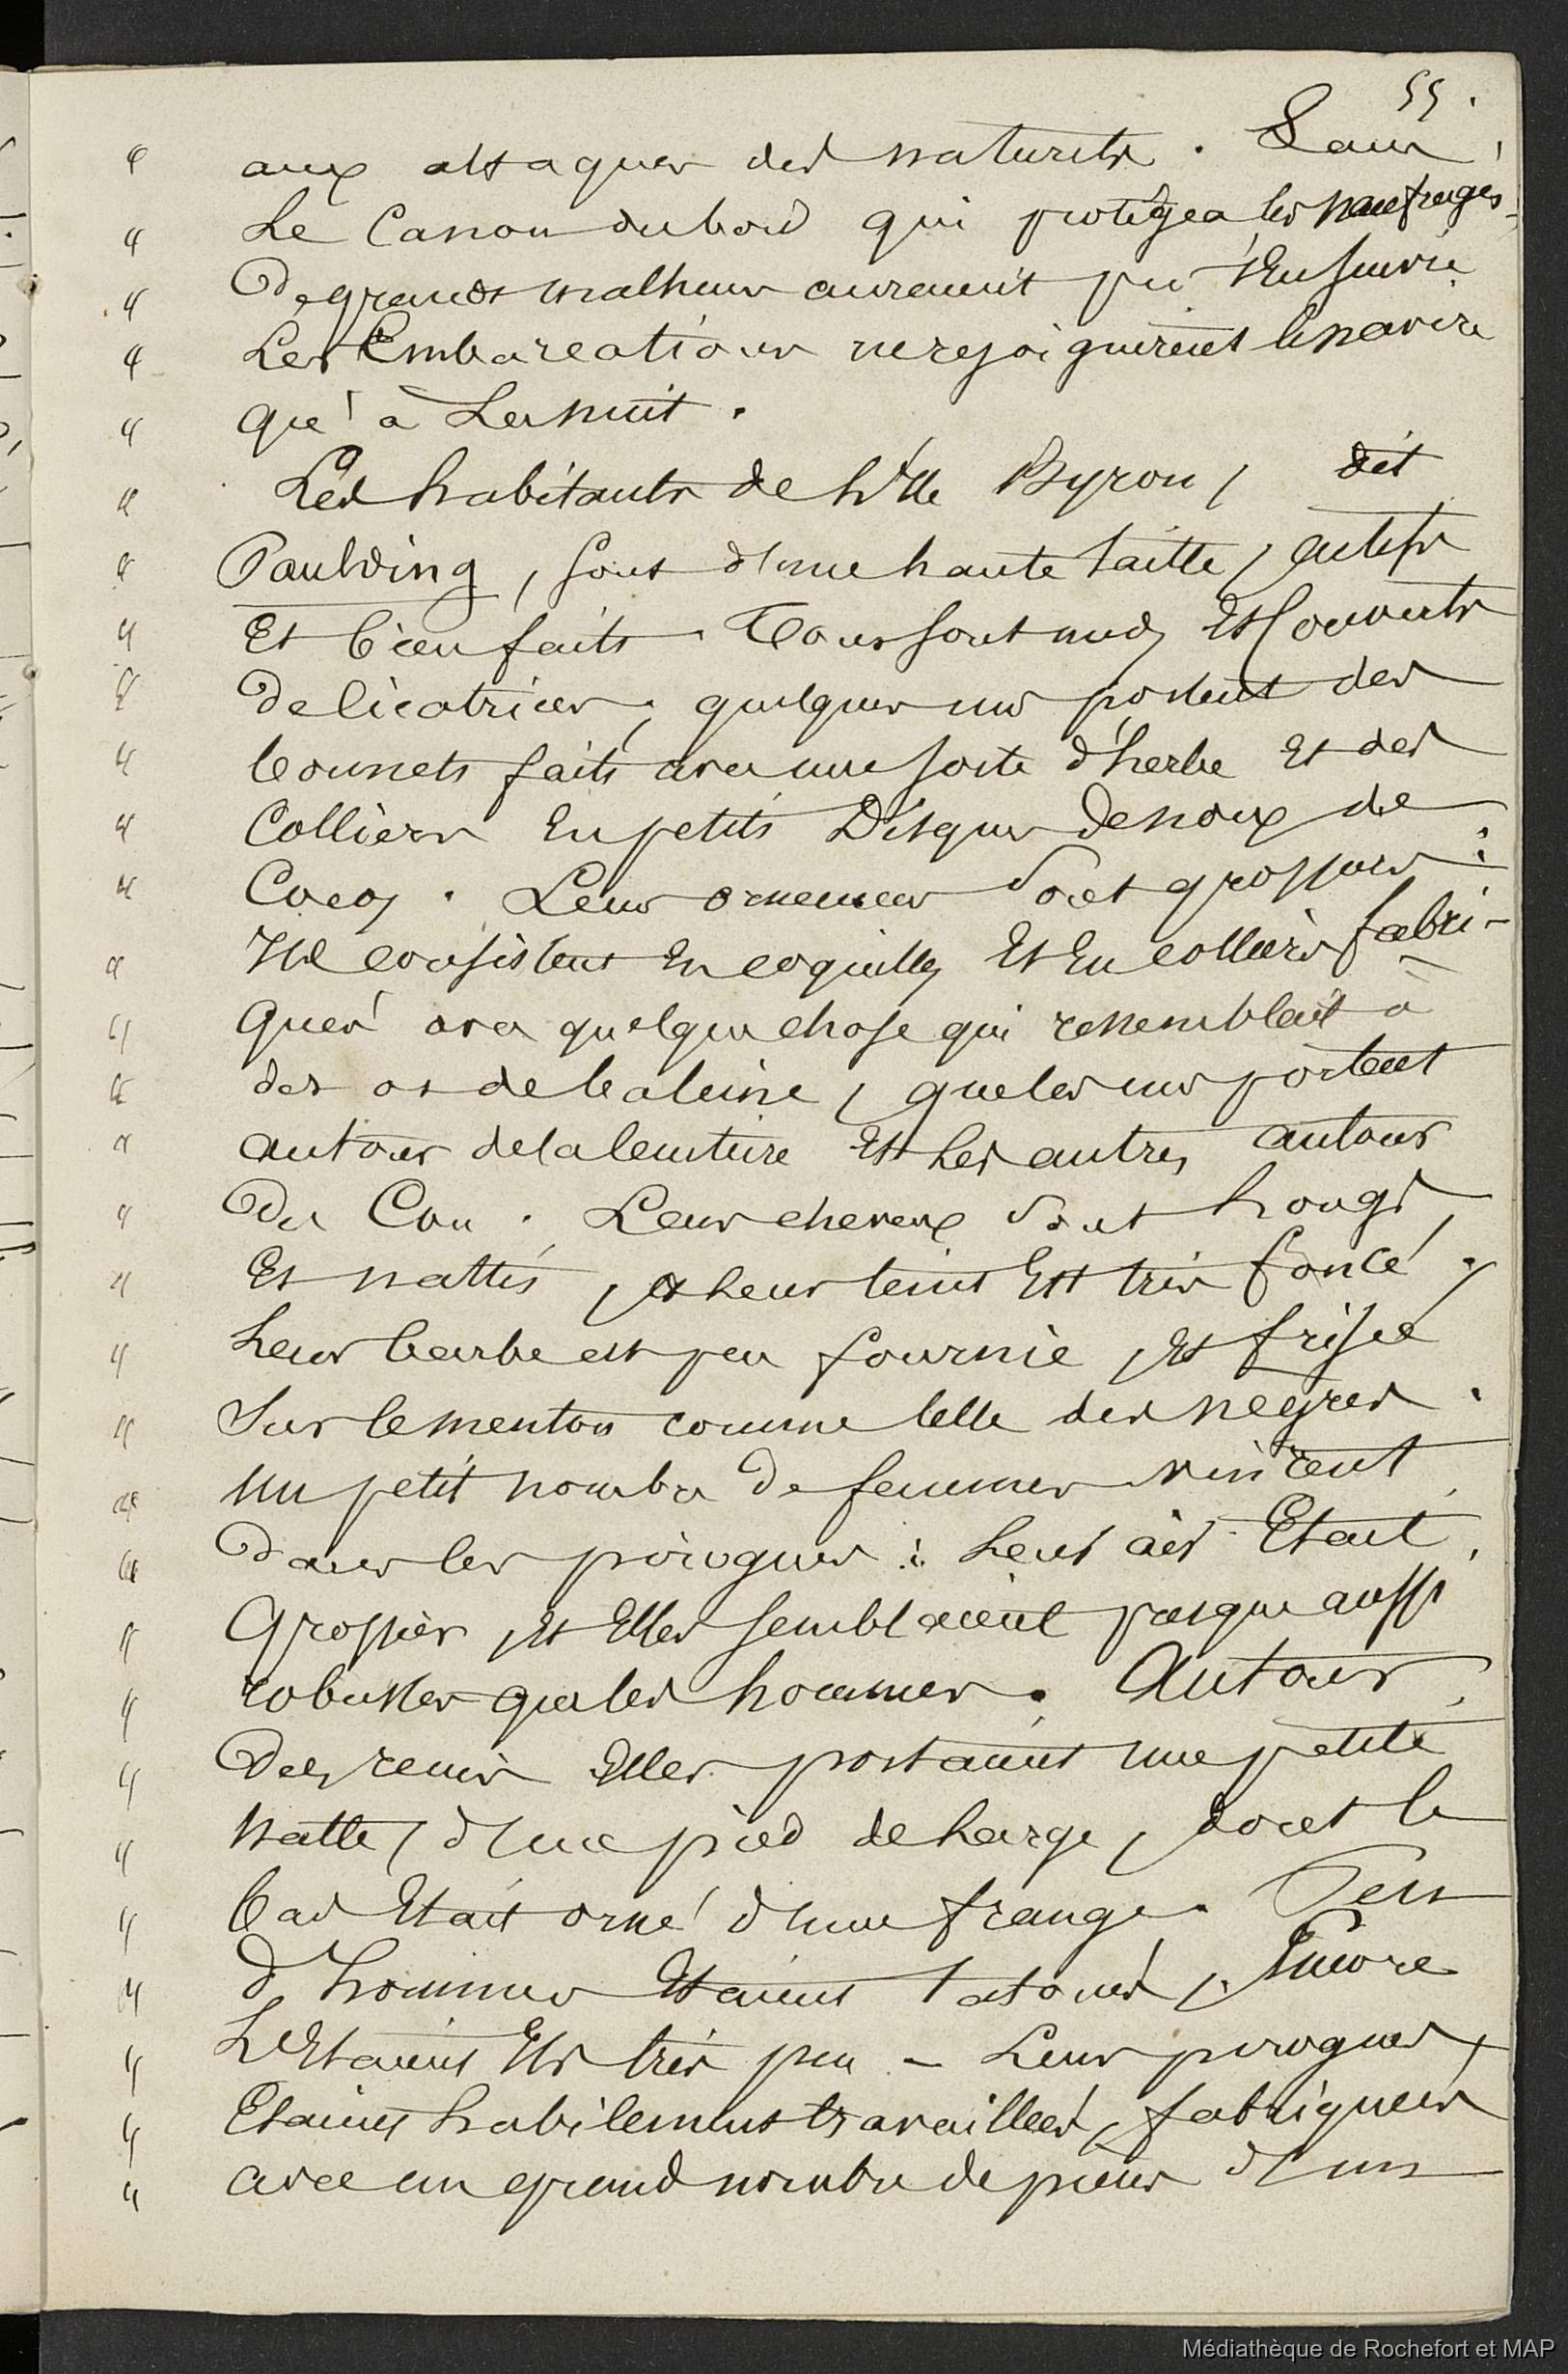 55.
" aux attaques des naturels. Sans
" Le Canon du bord qui protégea les naufragés,
" De grands malheurs auraient pu s'Ensuivre
" Les Embarcations ne rejoignirent le navire
" qu'à La nuit.
" Les habitants de l'Ile Byron, dit
" Paulding, sont d'une haute taille, actifs
" Et bien faits. Tous sont nuds Et Couverts
" De Cicatrices; quelques uns portent des
" bonnets faits avec une sorte d'herbe Et des
" Colliers En petits Disques De noix de
" Cocos. Leurs ornements Sont grossiers:
" Ils consistent En coquilles Et En colliers fabri-
" qués avec quelque chose qui ressemblait à
" des os de baleine, que les uns portent
" autour de la Ceinture Et Les autres autour
" Du Cou. Leurs cheveux Sont Longs,
" Et nattés, et Leur teint Est très foncé,
" Leur barbe est peu fournie, Et frisée
" Sur le menton comme Celle des nègres.
" Un petit nombre De femmes vinrent
" Dans les pirogues: Leur air Etait
" Grossier, Et Elles semblaient presque aussi
" robustes que les hommes. Autour
" Des reins Elles portaient une petite
" Natte, d'un pied de Large, dont le
" bas Etait orné d'une frange. Peu
" d'hommes Etaient tatoués, Encore
" L'Etaient Ils très peu - Leurs pirogues,
" Etaient habilement travaillées, fabriquées
" avec un grand nombre de pièces d'un
Médiathèque de Rochefort et MAP